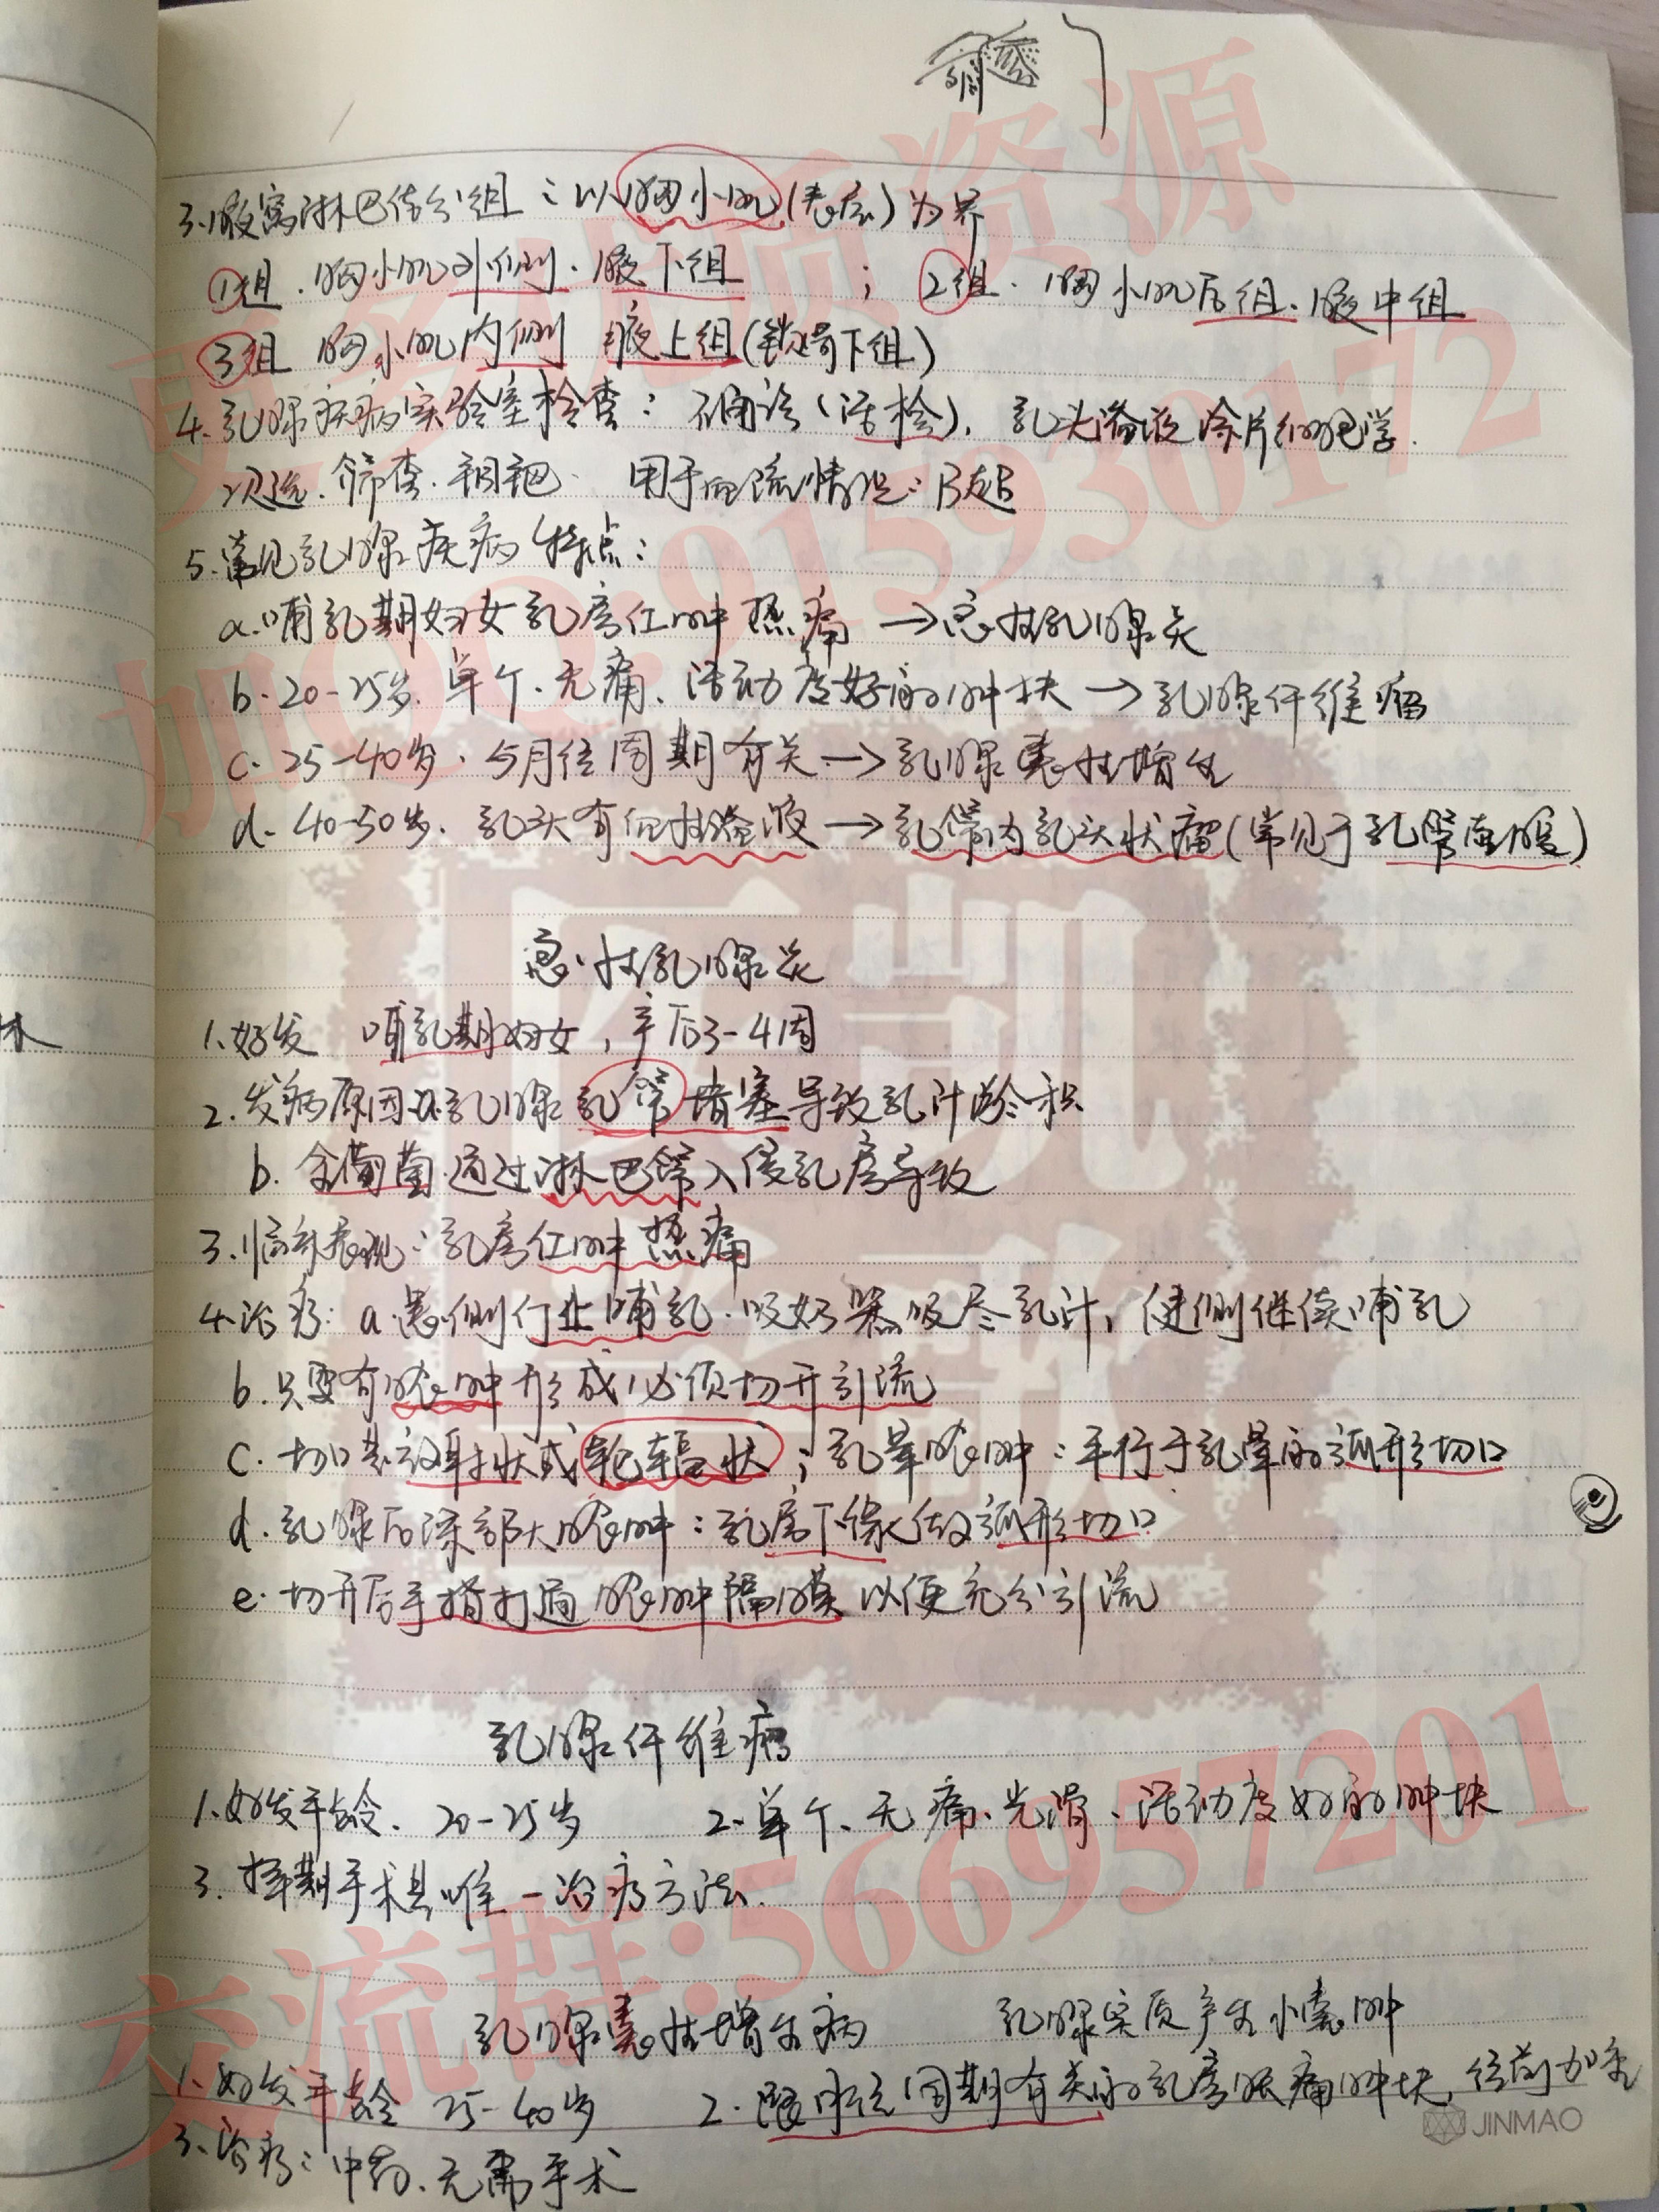 3.腋窝淋巴结分组：以胸小肌(表层)为界
①组.胸小肌外侧.腋下组；②组.胸小肌后组.腋中组
③组 胸小肌内侧 腋上组(锁骨下组)
4.乳腺疾病实验室检查：确诊(活检).乳头溢液涂片细胞学.
次选.筛查.钼靶.用于血流情况：B超
5.常见乳腺疾病特点：
a.哺乳期妇女乳房红肿热痛→急性乳腺炎
b.20-25岁.单个.无痛.活动度好的肿块→乳腺纤维瘤
c.25-40岁.与月经周期有关→乳腺囊性增生
d.40-50岁.乳头有血性溢液→乳管内乳头状瘤(常见于乳管壶腹)
急性乳腺炎
1.好发 哺乳期妇女,产后3-4周
2.发病原因:a.乳腺乳管堵塞导致乳汁淤积
b.金葡菌通过淋巴管入侵乳房导致
3.临床表现：乳房红肿热痛
4.治疗：a.患侧停止哺乳.吸奶器吸尽乳汁,健侧继续哺乳
b.只要有脓肿形成,必须切开引流
c.切口是放射状或轮辐状；乳晕脓肿：平行于乳晕的弧形切口
d.乳腺后深部大脓肿：乳房下缘做弧形切口
e.切开后手指打通脓肿隔膜以便充分引流
乳腺纤维瘤
1.好发年龄.20-25岁 2.单个、无痛、光滑、活动度好的肿块
3.择期手术是唯一治疗方法.
乳腺囊性增生病 乳腺实质产生小囊肿
1.好发年龄 25-40岁 2.跟月经周期有关的乳房胀痛肿块,经前加重
3.治疗：中药.无需手术
JINMAO
更多优质资源
加QQ:915930172
医凯
交流群:566957201